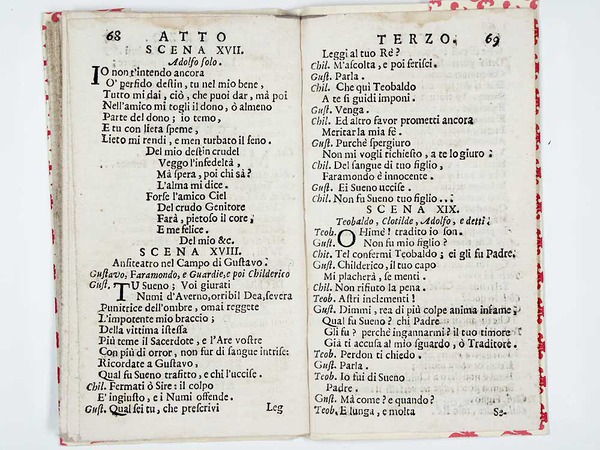 68 ATTO
SCENA XVII.
Adolfo solo.
IO non t'intendo ancora
O' perfido destin, tu nel mio bene,
Tutto mi dai, ciò, che puoi dar, mà poi
Nell'amico mi togli il dono, ò almeno
Parte del dono; io temo,
E tu con lieta speme,
Lieto mi rendi, e men turbato il seno.
Del mio destin crudel
Veggo l'infedeltà,
Mà spera, poi chi sà?
L'alma mi dice.
Forse l'amico Ciel
Del crudo Genitore
Farà, pietoso il core,
E me felice.
Del mio &c.
SCENA XVIII.
Anfiteatro nel Campo di Gustavo.
Gustavo, Faramondo, e Guardie, e poi Childerico
Gust. TU Sueno; Voi giurati
Numi d'Averno, orribil Dea, severa
Punitrice dell'ombre, omai reggete
L'impotente mio braccio;
Della vittima istessa
Più teme il Sacerdote, e l'Are vostre
Con più di orror, non fur di sangue intrise:
Ricordate a Gustavo,
Qual fu Sueno trafitto, e chi l'uccise.
Chil. Fermati ò Sire: il colpo
E' ingiusto, e i Numi offende.
Gust. Qual sei tu, che prescrivi
Leg
TERZO. 69
Leggi al tuo Rè?
Chil. M'ascolta, e poi ferisci.
Gust. Parla.
Chil. Che qui Teobaldo
A te si guidi imponi.
Gust. Venga.
Chil. Ed altro favor prometti ancora
Meritar la mia fè.
Gust. Purché spergiuro
Non mi vogli richiesto, a te lo giuro:
Chil. Del sangue di tuo figlio,
Faramondo è innocente.
Gust. Ei Sueno uccise.
Chil. Non fu Sueno tuo figlio...
SCENA XIX.
Teobaldo, Clotilde, Adolfo, e detti.
Teob. OHimè! tradito io son.
Gust. Non fu mio figlio?
Chil. Tel confermi Teobaldo; ei gli fu Padre.
Gust. Childerico, il tuo capo
Mi placherà, se menti.
Chil. Non rifiuto la pena.
Teob. Astri inclementi!
Gust. Dimmi, rea di più colpe anima infame,
Qual fu Sueno? chi Padre
Gli fu? perché ingannarmi? il tuo timore
Già ti accusa al mio sguardo, ò Traditore.
Teob. Perdon ti chiedo.
Gust. Parla.
Teob. Io fui di Sueno
Padre.
Gust. Mà come? e quando?
Teob. E lunga, e molta
Se-